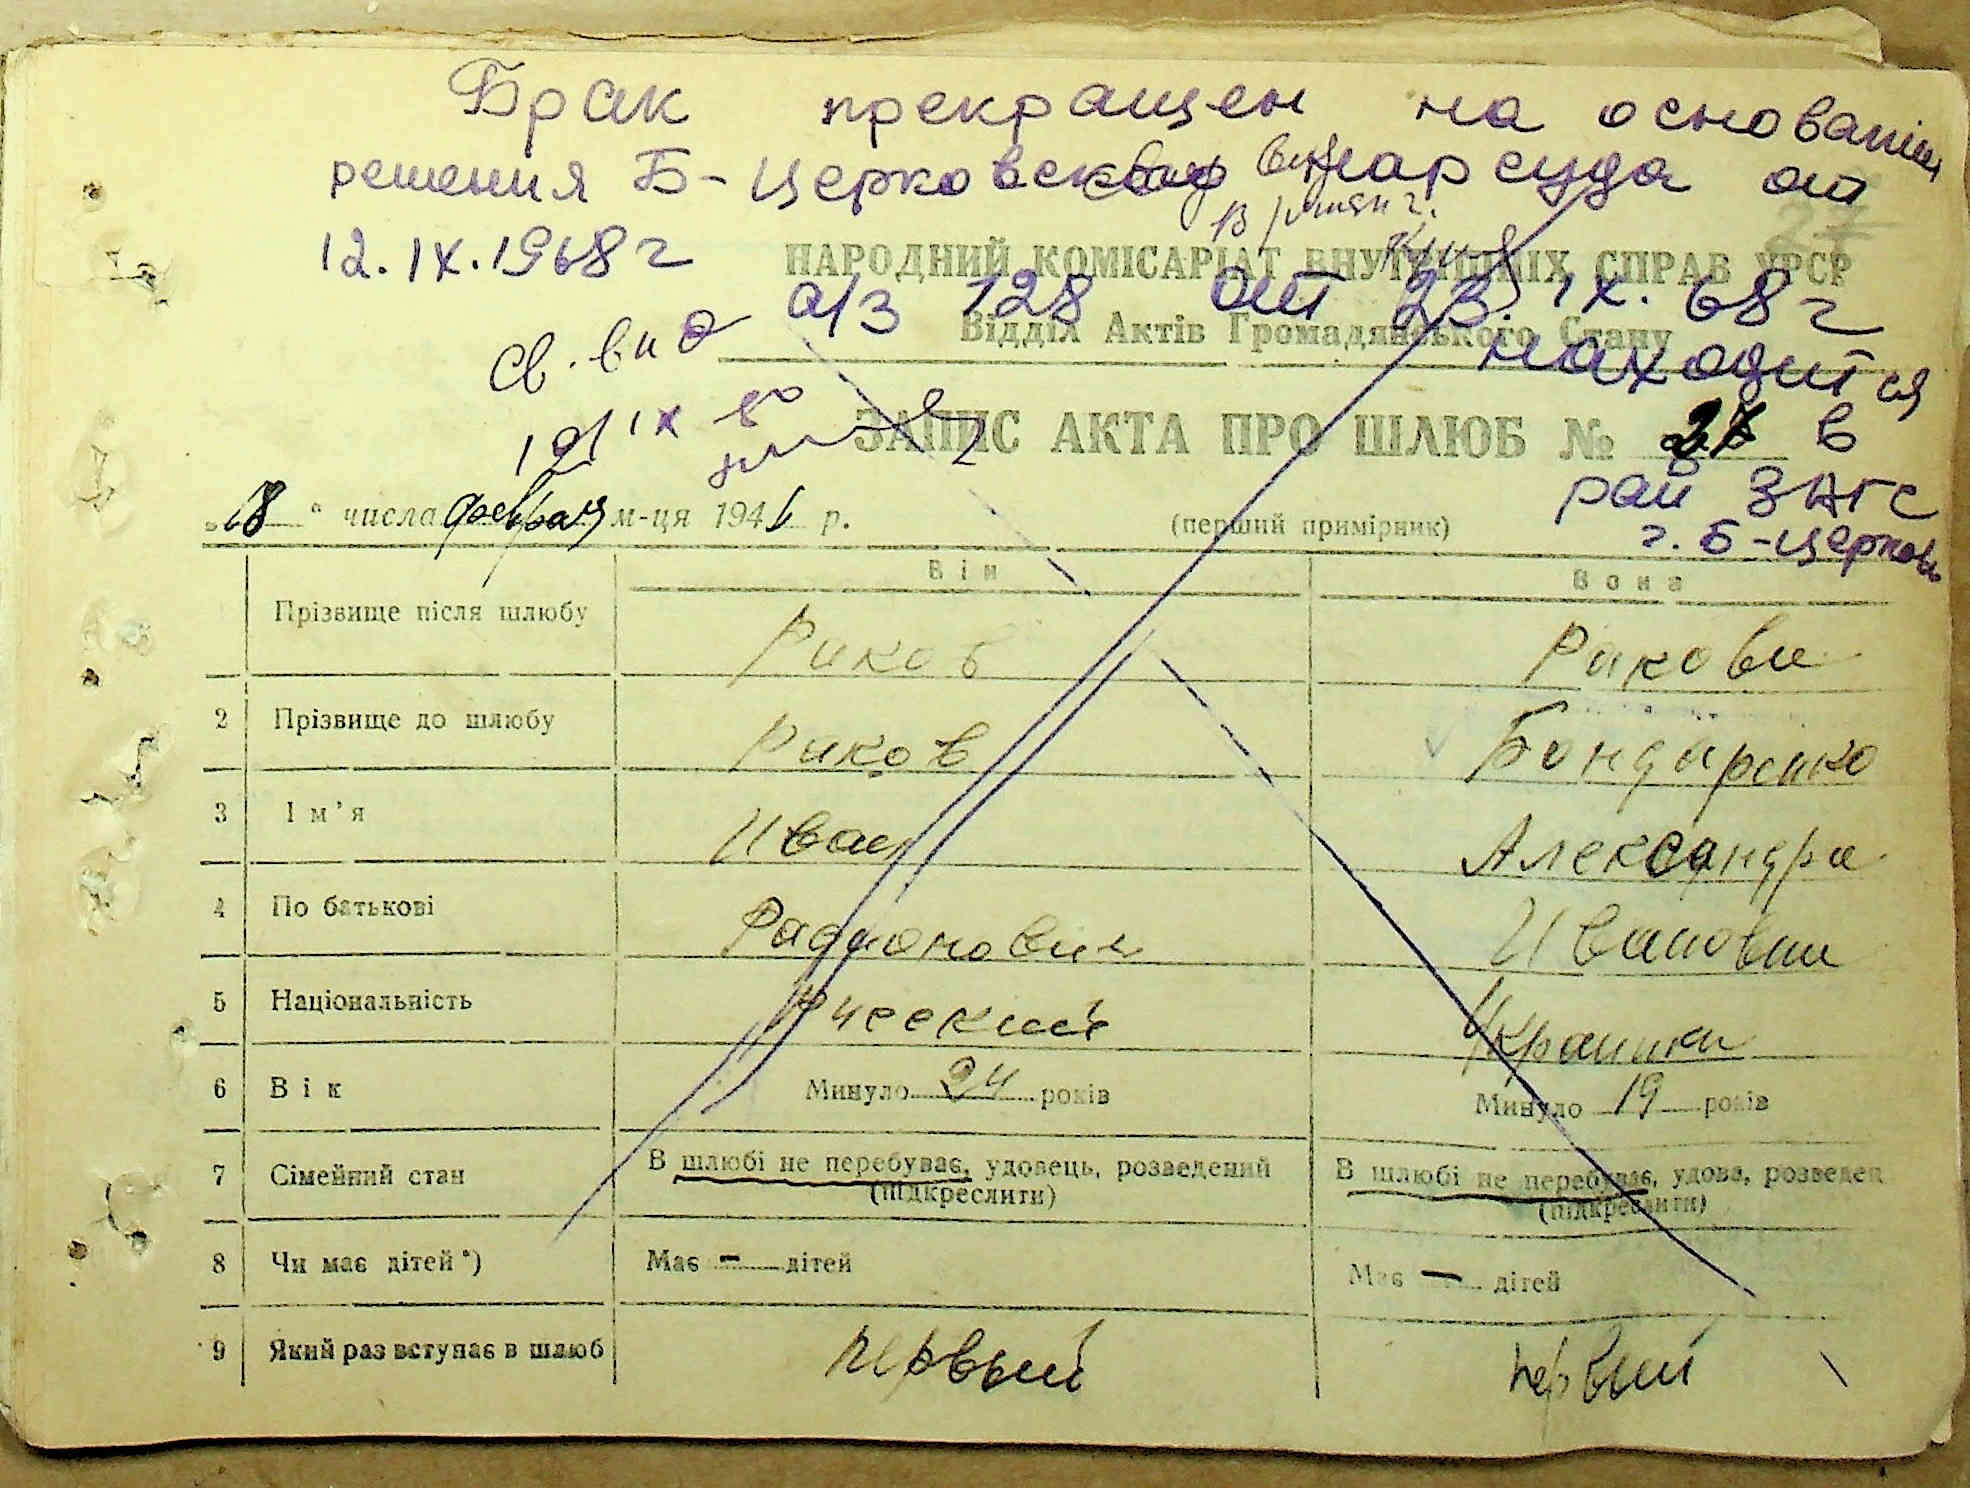 Брак прекращен на основании
решения Б-Церковского нарсуда от
12.IX.1968 г
27
НАРОДНИЙ КОМІСАРІАТ ВНУТРІШНІХ СПРАВ УРСР
а/з 128 от 23.IX.68 г
Відділ Актів Громадянського Стану
находится
св. вид
ЗАПИС АКТА ПРО ШЛЮБ № 27 в
19/IX 80
рай ЗАГС
„18" числа февраля м-ця 1941 р. (перший примірник)
г. Б-Церковь
Він Вона
Прізвище після шлюбу Раков Ракова
2 Прізвище до шлюбу Раков Бондаренко
3 Ім'я Иван Александра
4 По батькові Радионович Ивановна
5 Національність Русский Украинка
6 Вік Минуло 24 років Минуло 19 років
7 Сімейний стан В шлюбі не перебуває, удовець, розведений В шлюбі не перебуває, удова, розведен
(підкреслити) (підкреслити)
8 Чи має дітей*) Має - дітей Має - дітей
9 Який раз вступає в шлюб первый первый